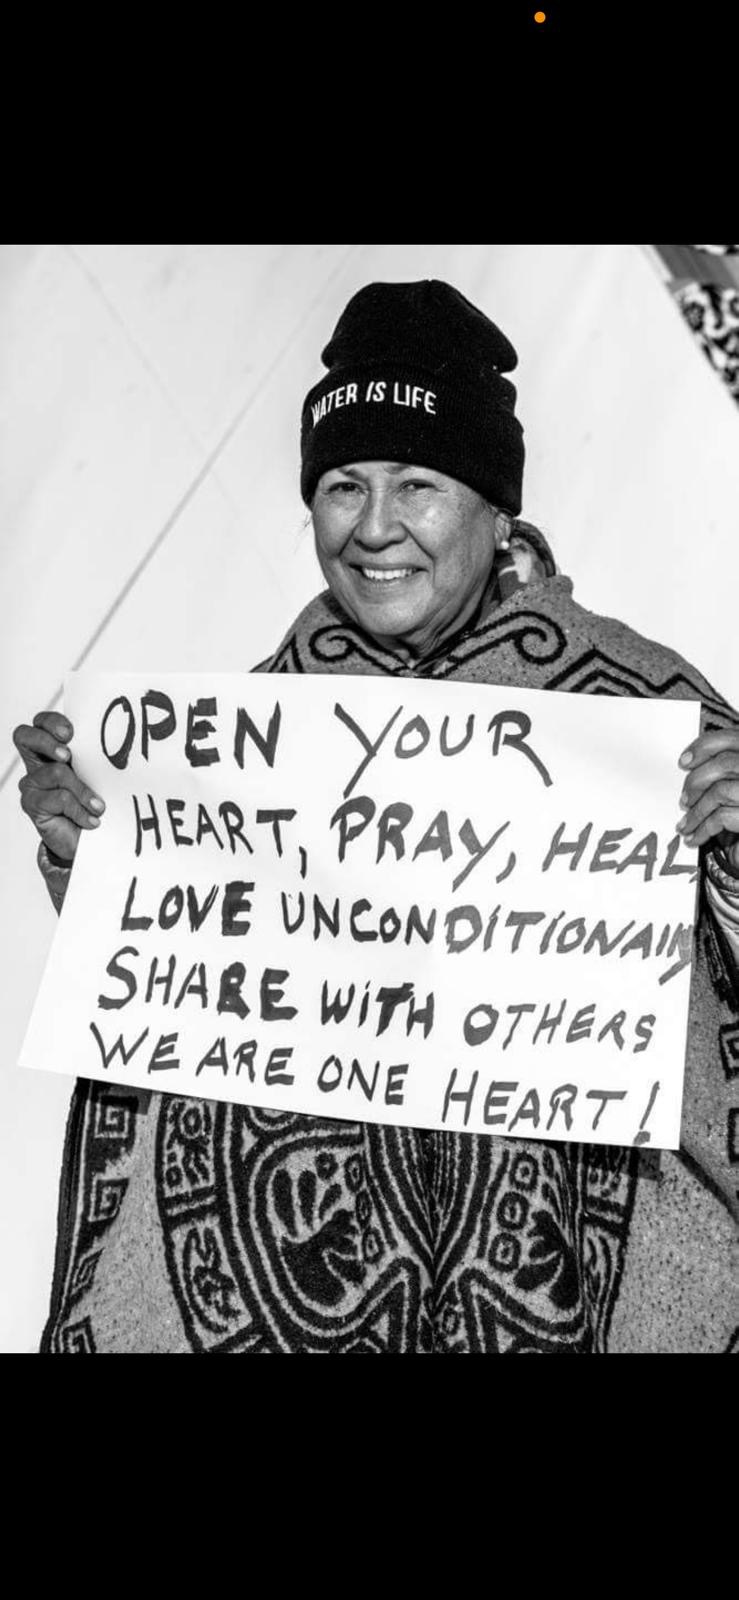 WATER IS LIFE
OPEN YOUR
HEART, PRAY, HEAL,
LOVE UNCONDITIONAlly
SHARE WITH OTHERS
WE ARE ONE HEART!